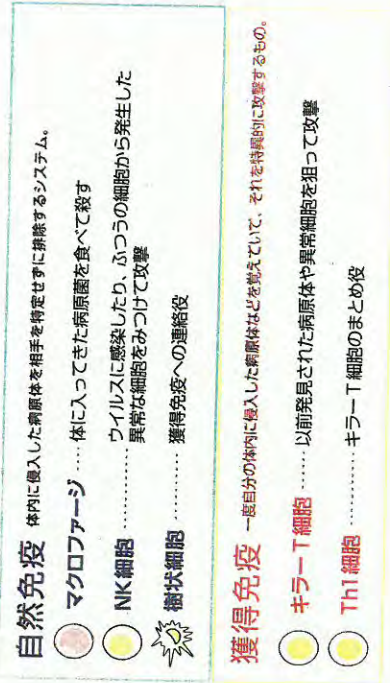 自然免疫 体内に侵入した病原体を相手を特定せずに排除するシステム。
マクロファージ ……体に入ってきた病原菌を食べて殺す
NK細胞 …………ウイルスに感染したり、ふつうの細胞から発生した
異常な細胞をみつけて攻撃
樹状細胞 …………獲得免疫への連絡役
獲得免疫 一度自分の体内に侵入した病原体などを覚えていて、それを特異的に攻撃するもの。
キラーT細胞 ……以前発見された病原体や異常細胞を狙って攻撃
Th1細胞 …………キラーT細胞のまとめ役